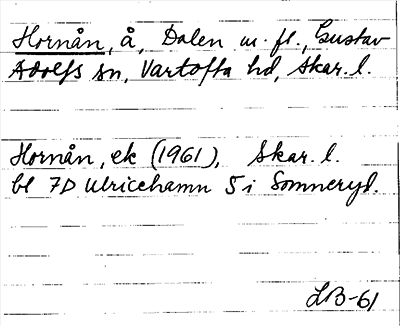 Hornån, å, Dalen m. fl., Gustav
Adolfs sn, Vartofta hd, Skar. l.
Hornån, ek (1961), Skar. l.
bl 7D Ulricehamn 5 i Somneryd.
LB-61